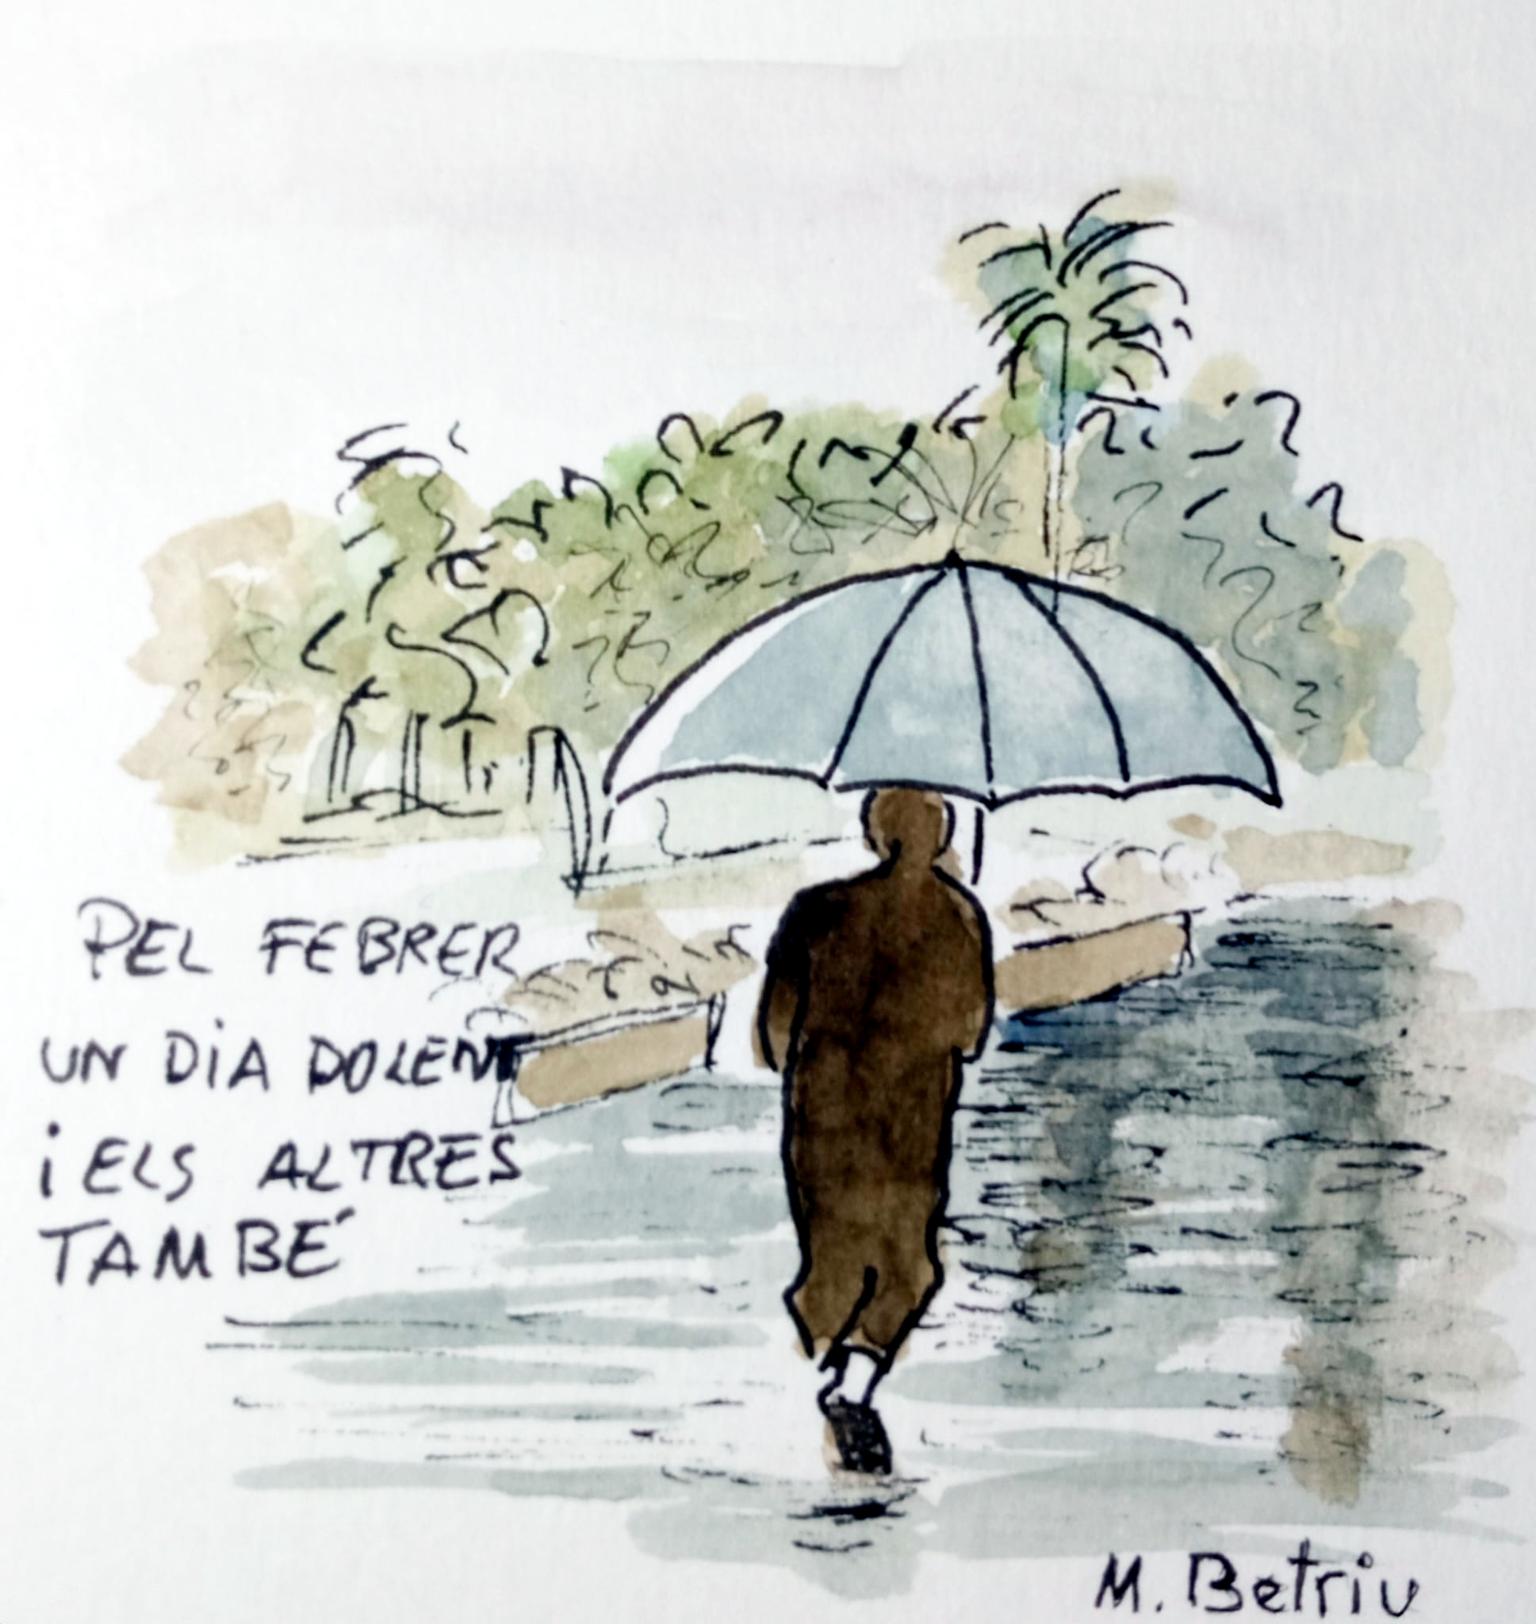 PEL FEBRER
UN DiA DOLENT
i ELS ALTRES
TAMBÉ
M. Betriu